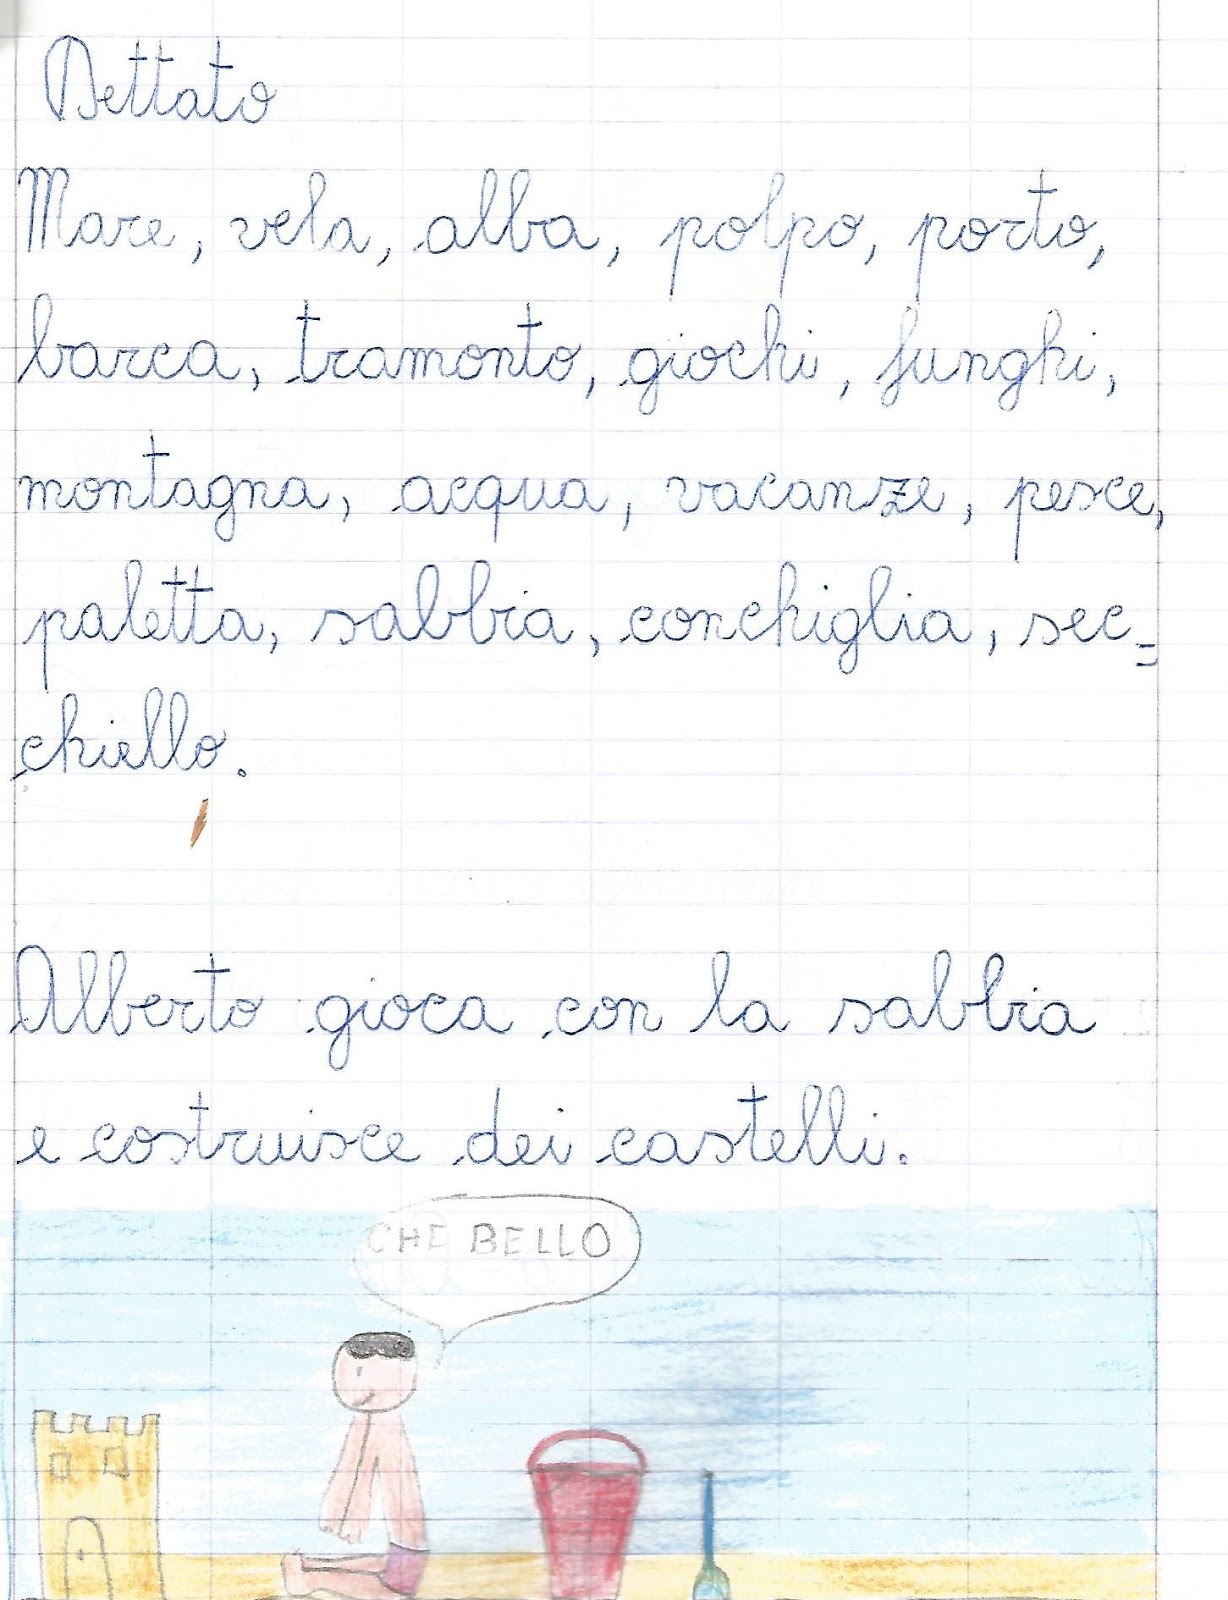 Dettato
Mare, vela, alba, polpo, porto,
barca, tramonto, giochi, funghi,
montagna, acqua, vacanze, pesce,
paletta, sabbia, conchiglia, sec=
chiello.
Alberto gioca con la sabbia
e costruisce dei castelli.
CHE BELLO